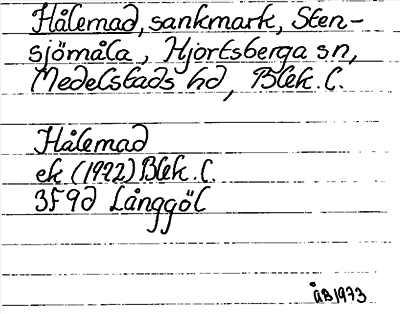 Hålemad, sankmark, Sten-
sjömåla, Hjortsberga sn,
Medelstads hd, Blek. l.
Hålemad
ek (1922) Blek. l.
3F 9d Långgöl
ÅB 1973